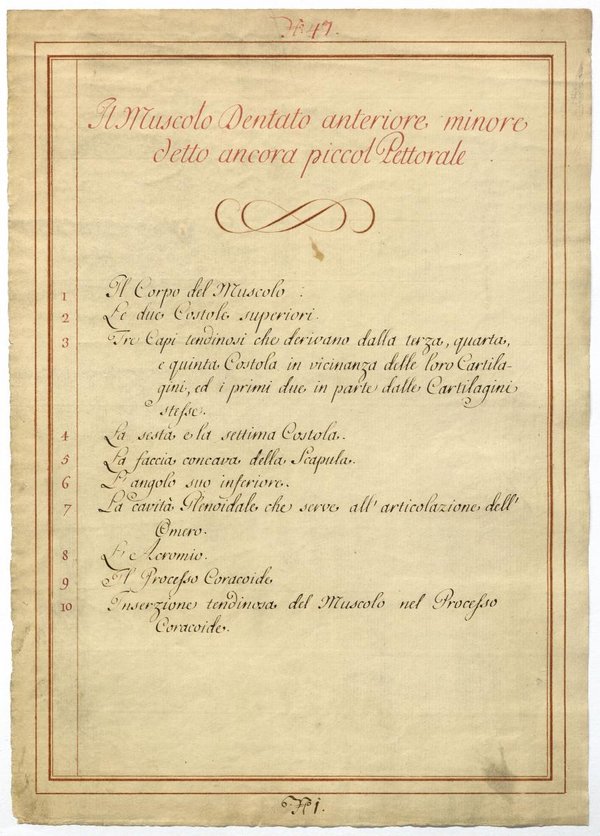 Nº 47.
Il Muscolo Dentato anteriore minore
detto ancora piccol Pettorale
1 Il Corpo del Muscolo :
2 Le due Costole superiori.
3 Tre Capi tendinosi che derivano dalla terza, quarta,
e quinta Costola in vicinanza delle loro Cartila-
gini, ed i primi due in parte dalle Cartilagini
stesse.
4 La sesta e la settima Costola.
5 La faccia concava della Scapula.
6 L'angolo suo inferiore.
7 La cavità Glenoidale che serve all' articolazione dell'
Omero.
8 L'Acromio.
9 Il Processo Coracoide
10 Inserzione tendinosa del Muscolo nel Processo
Coracoide.
Nº 1.